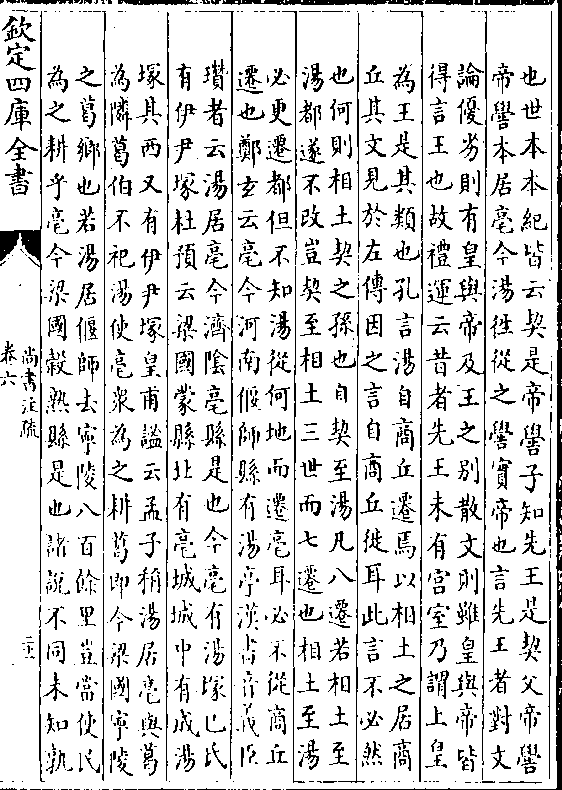 也世本本紀皆云契是帝嚳子知先王是契父帝嚳
帝嚳本居亳今湯徃從之嚳實帝也言先王者對文
論優劣則有皇與帝及王之别散文則雖皇與帝皆
得言王也故禮運云昔者先王未有宫室乃謂上皇
為王是其類也孔言湯自商丘遷焉以相土之居商
丘其文見於左傳因之言自商丘徙耳此言不必然
也何則相土契之孫也自契至湯凡八遷若相土至
湯都遂不改豈契至相土三世而七遷也相土至湯
必更遷都但不知湯從何地而遷亳耳必不從商丘
遷也鄭玄云亳今河南偃師縣有湯亭漢書音義臣
瓚者云湯居亳今濟陰亳縣是也今亳有湯塚已氏
有伊尹塚杜預云梁國蒙縣北有亳城城中有成湯
塚其西又有伊尹塚皇甫謐云孟子稱湯居亳與葛
為隣葛伯不祀湯使亳衆為之耕葛即今梁國寧陵
之葛鄉也若湯居偃師去寧陵八百餘里豈當使民
為之耕乎亳今梁國榖熟縣是也諸說不同未知孰
欽定四庫全書
尚書注疏
卷六